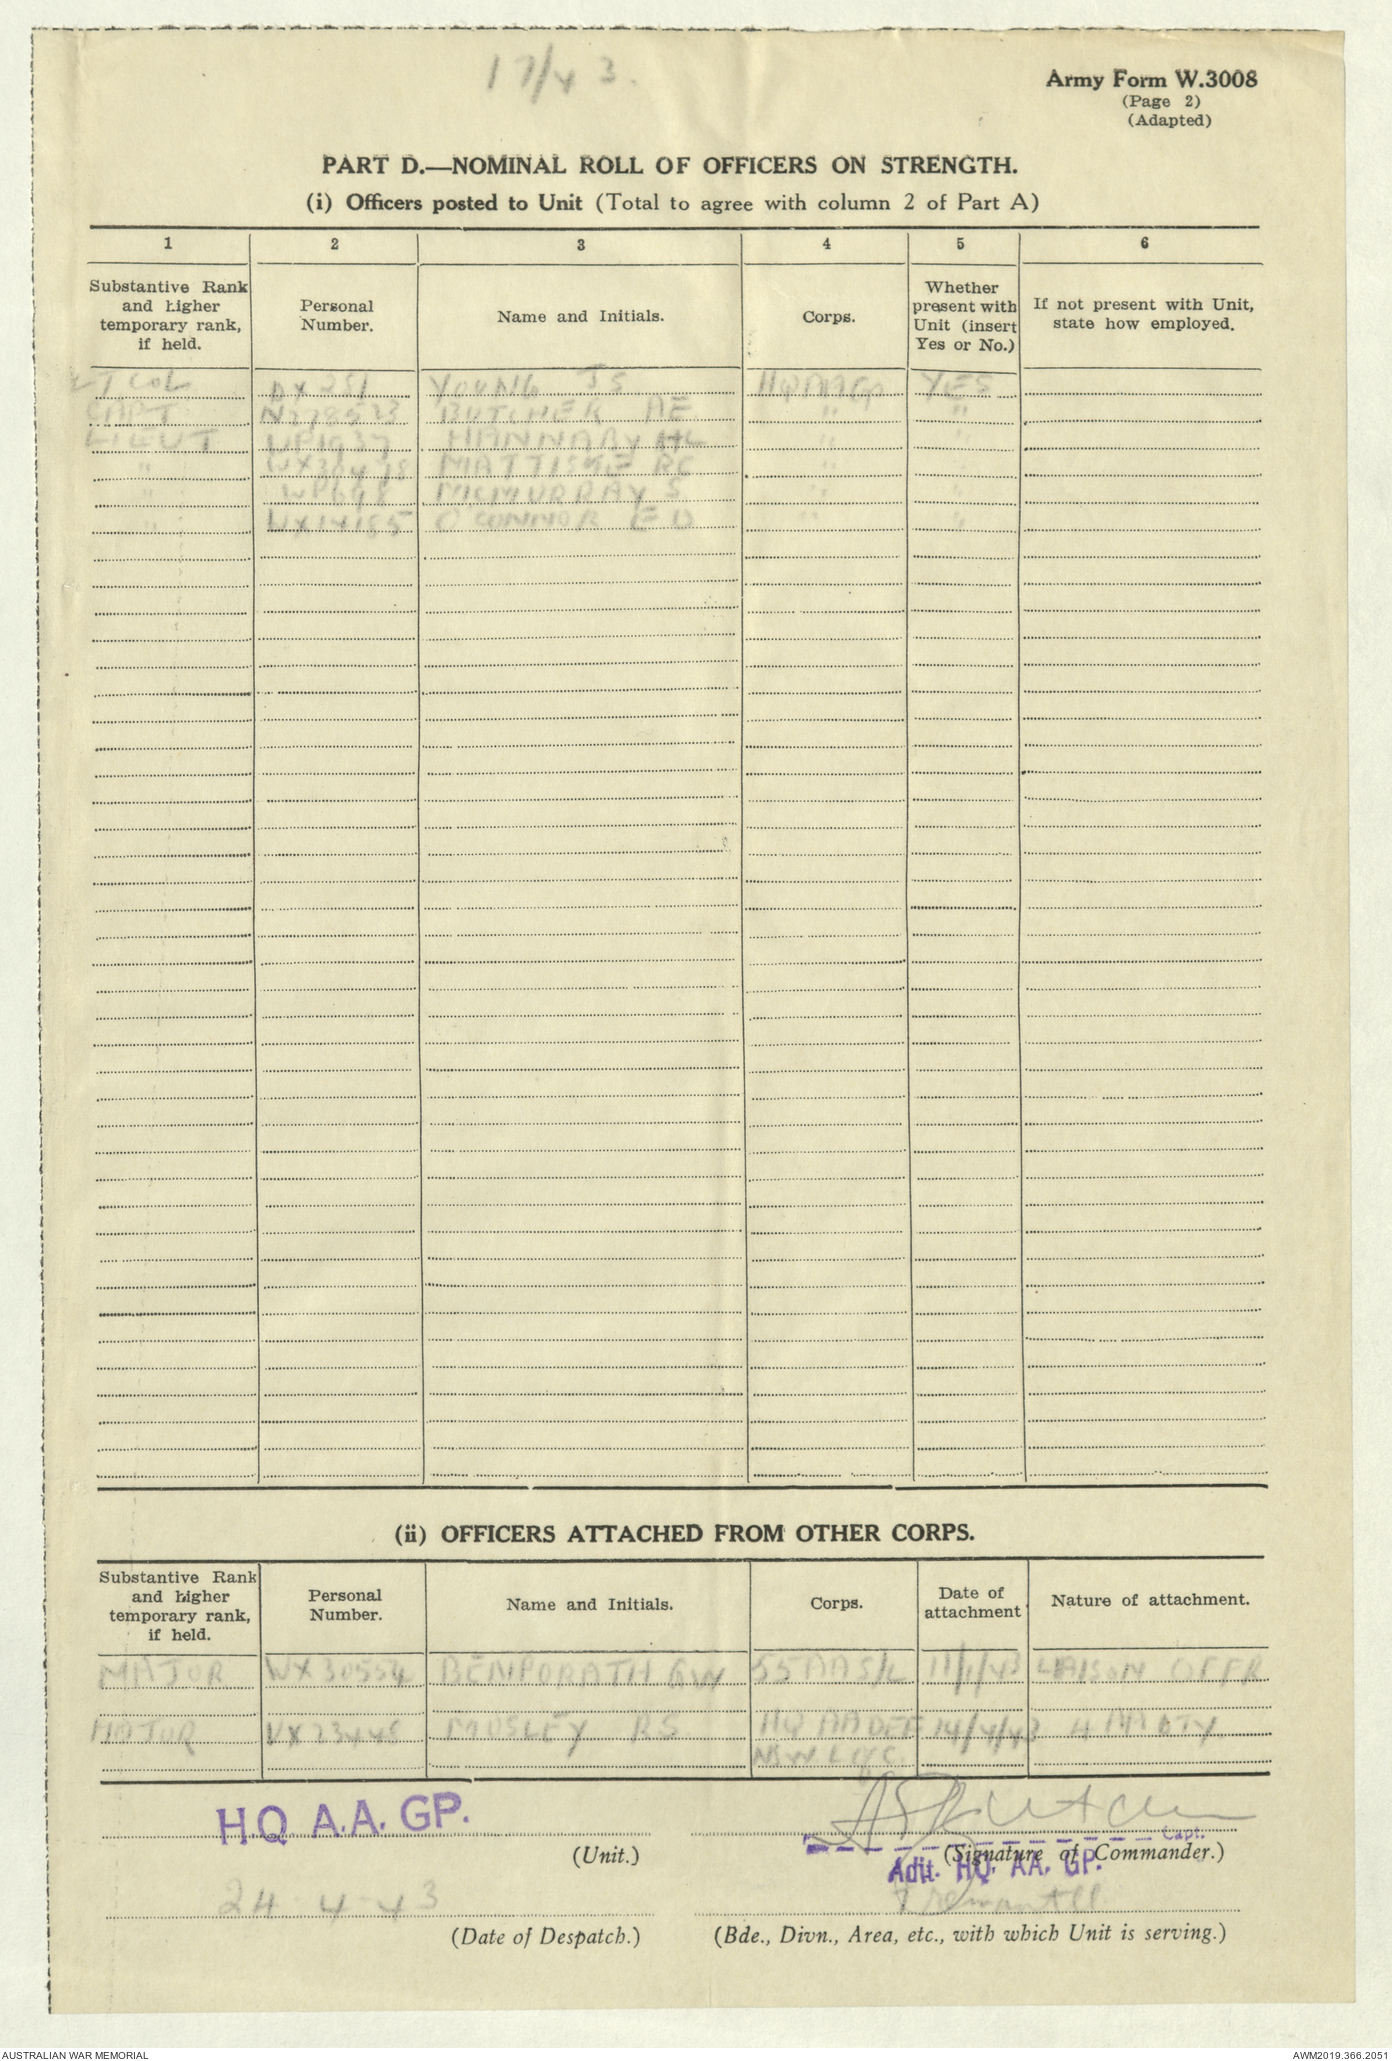 17/43.
Army Form W.3008
(Page 2)
(Adapted)
PART D.—NOMINAL ROLL OF OFFICERS ON STRENGTH.
(i) Officers posted to Unit (Total to agree with column 2 of Part A)
1 2 3 4 5 6
Substantive Rank and higher temporary rank, if held. Personal Number. Name and Initials. Corps. Whether present with Unit (insert Yes or No.) If not present with Unit, state how employed.
LT COL DX 251 YOUNG JS HQ AAGP YES
CAPT N278523 BUTCHER AE " "
LIEUT WP1937 HANNARY HL " "
" WX30478 MATTISKE RC " "
" WP698 MCMURRAY S " "
" WX14185 O'CONNOR E D " "
(ii) OFFICERS ATTACHED FROM OTHER CORPS.
Substantive Rank and higher temporary rank, if held. Personal Number. Name and Initials. Corps. Date of attachment Nature of attachment.
MAJOR WX 30554 BENPORATH GW 55 AA S/L 11/1/43 LIAISON OFFR
MAJOR VX 23448 MOSLEY RS HQ AA DEF 14/4/43 4 AA DTY
NSW L of C
H.Q. A.A. GP.
(Unit.)
A E Butcher
Capt.
(Signature of Commander.)
Adjt. HQ. AA. GP.
24 4-43
Fremantle
(Date of Despatch.)
(Bde., Divn., Area, etc., with which Unit is serving.)
AUSTRALIAN WAR MEMORIAL
AWM2019.366.2051